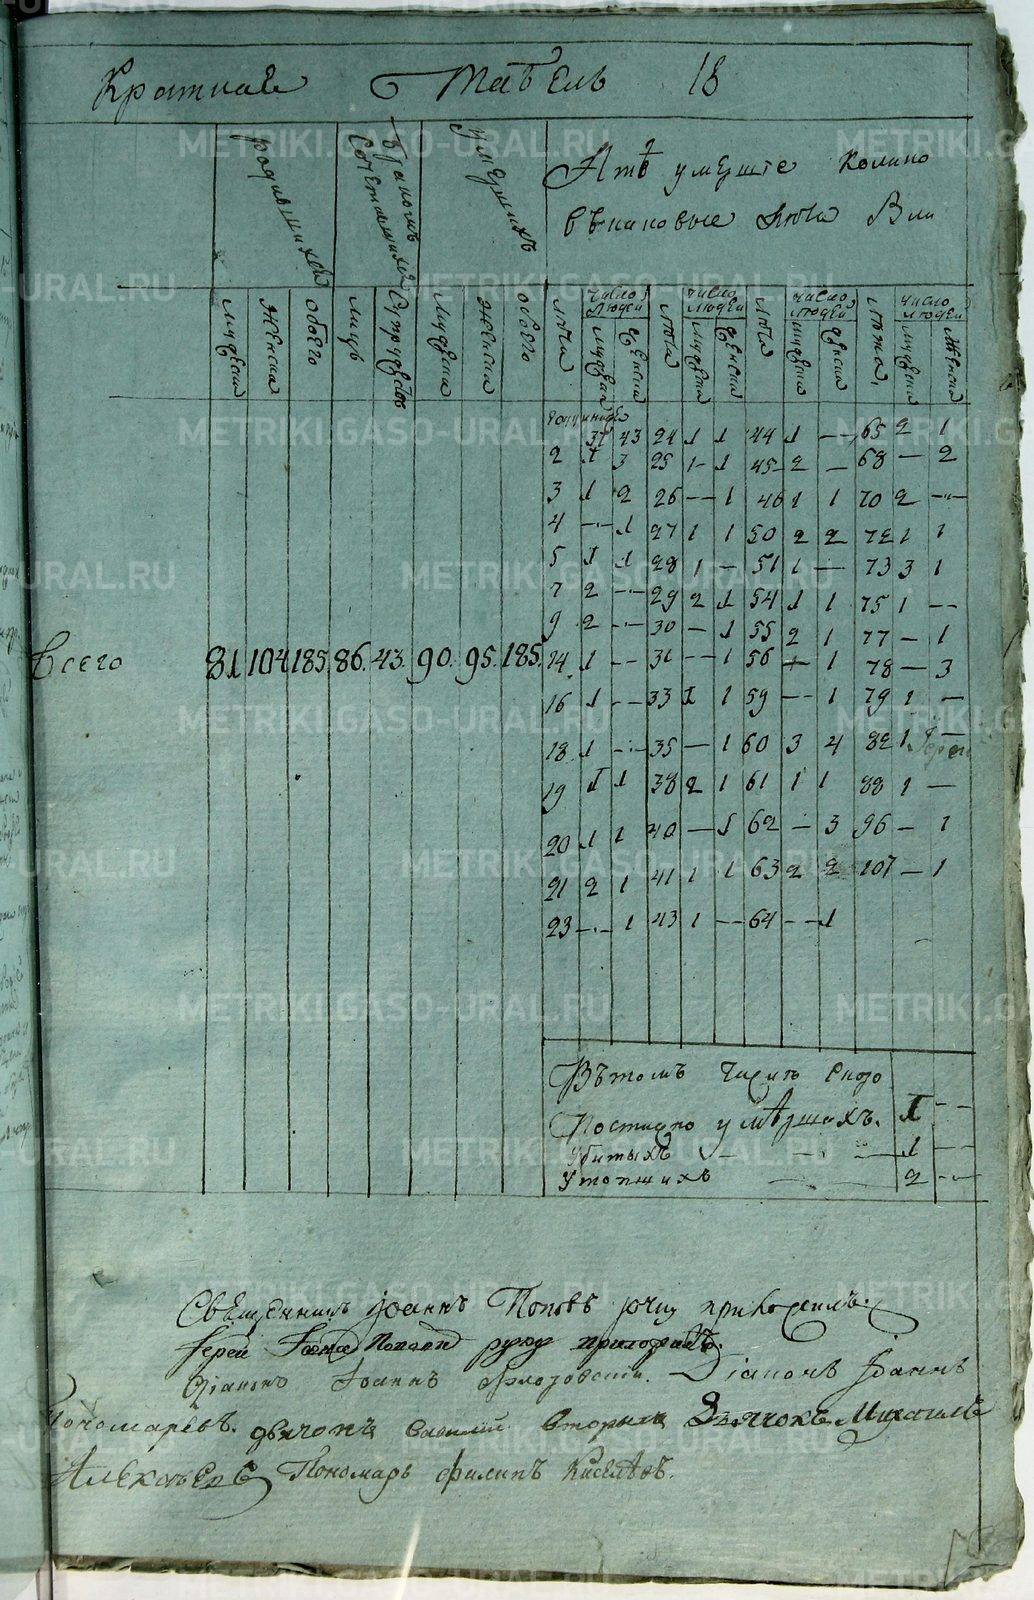 Краткая Табель 18
родившихся
бракомъ сочетавшихся
умершихъ
А тѣ умерште колико
вѣкиковые лѣта
мужеска
женска
обоего
лицъ
супружествъ
мужеска
женска
обоего
лѣта
число людей
мужеска
женска
лѣта
число людей
мужеска
женска
лѣта
число людей
мужеска
женска
лѣта
число людей
мужеска
женска
37 43 24 1 1 44 1 — 65 2 1
2 1 3 25 1 1 45 2 — 68 — 2
3 1 2 26 — 1 46 1 1 70 2 —
4 — 1 27 1 1 50 2 2 72 1 1
5 1 1 28 1 — 51 1 — 73 3 1
7 2 — 29 2 1 54 1 1 75 1 —
9 2 — 30 — 1 55 2 1 77 — 1
Всего 81 104 185 86 43 90 95 185 14 1 — 31 — 1 56 — 1 78 — 3
16 1 — 33 1 1 59 — 1 79 1 —
18 1 — 35 — 1 60 3 4 82 1 —
19 1 1 38 2 1 61 1 1 88 1 —
20 1 1 40 — 1 62 — 3 96 — 1
21 2 1 41 1 1 63 2 2 107 — 1
23 — 1 43 1 — 64 — 1
Вътомъ числѣ скоро
постижно умѣршихъ. 1 —
Убитыхъ — 1 —
Утопшихъ — 2 —
Священникъ Iоаннъ Поповъ руку приложилъ.
Iерей Попов руку приложилъ.
Дiаконъ Iоаннъ Флоровскiй. Дiаконъ Iоаннъ
Пономаревъ. дьячокъ Василiй Вторыхъ Дьячокъ Михаилъ
Алексѣевъ Пономарь Филипъ Киселѣвъ.
METRIKI.GASO-URAL.RU